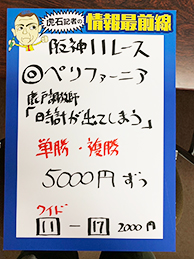 虎石記者の
情報最前線
阪神11レース
◎ペリファーニア
「時計が出てしまう」
単勝・複勝
5000円ずつ
ワイド
11－17 2000円